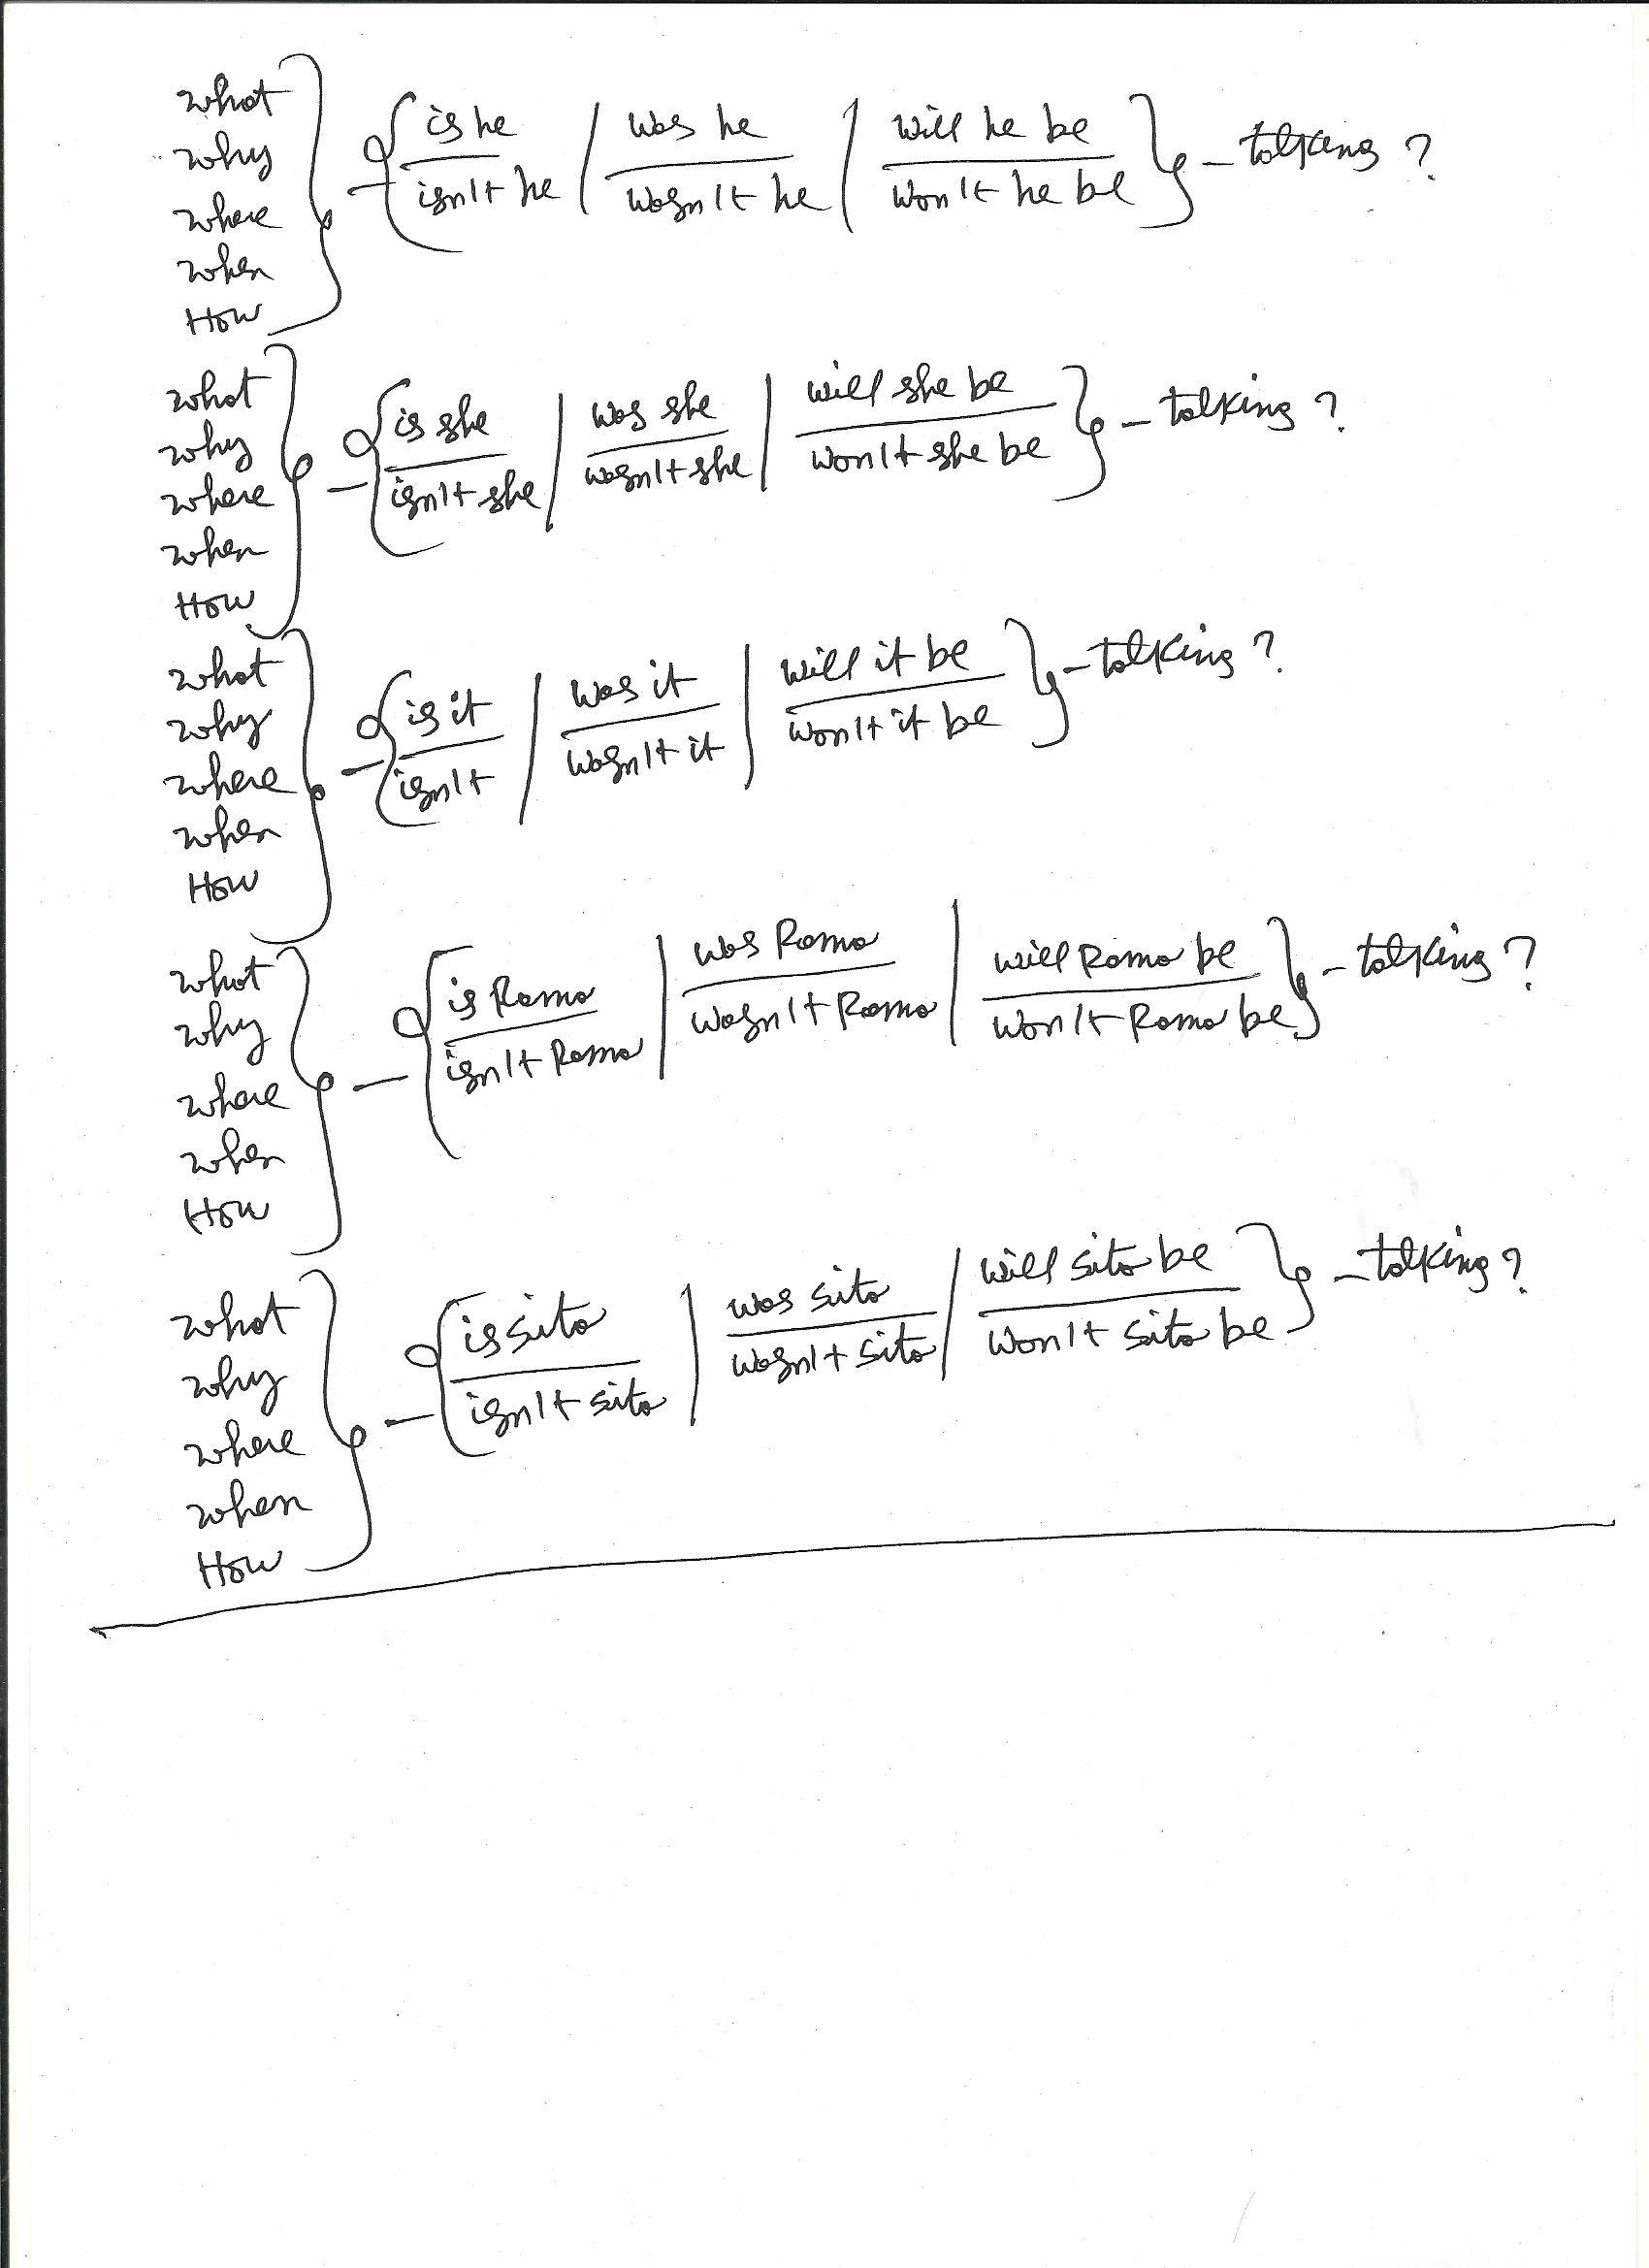 what
why
where
when
How
is he / was he / will he be
isn't he / wasn't he / won't he be
- talking ?
what
why
where
when
How
is she / was she / will she be
isn't she / wasn't she / won't she be
- talking ?
what
why
where
when
How
is it / was it / will it be
isn't / wasn't it / won't it be
- talking ?
what
why
where
when
How
is Rama | was Rama | will Rama be
isn't Rama | wasn't Rama | won't Rama be
- talking ?
what
why
where
when
How
is sita | was sita / will sita be
isn't sita | wasn't sita / won't sita be
- talking ?